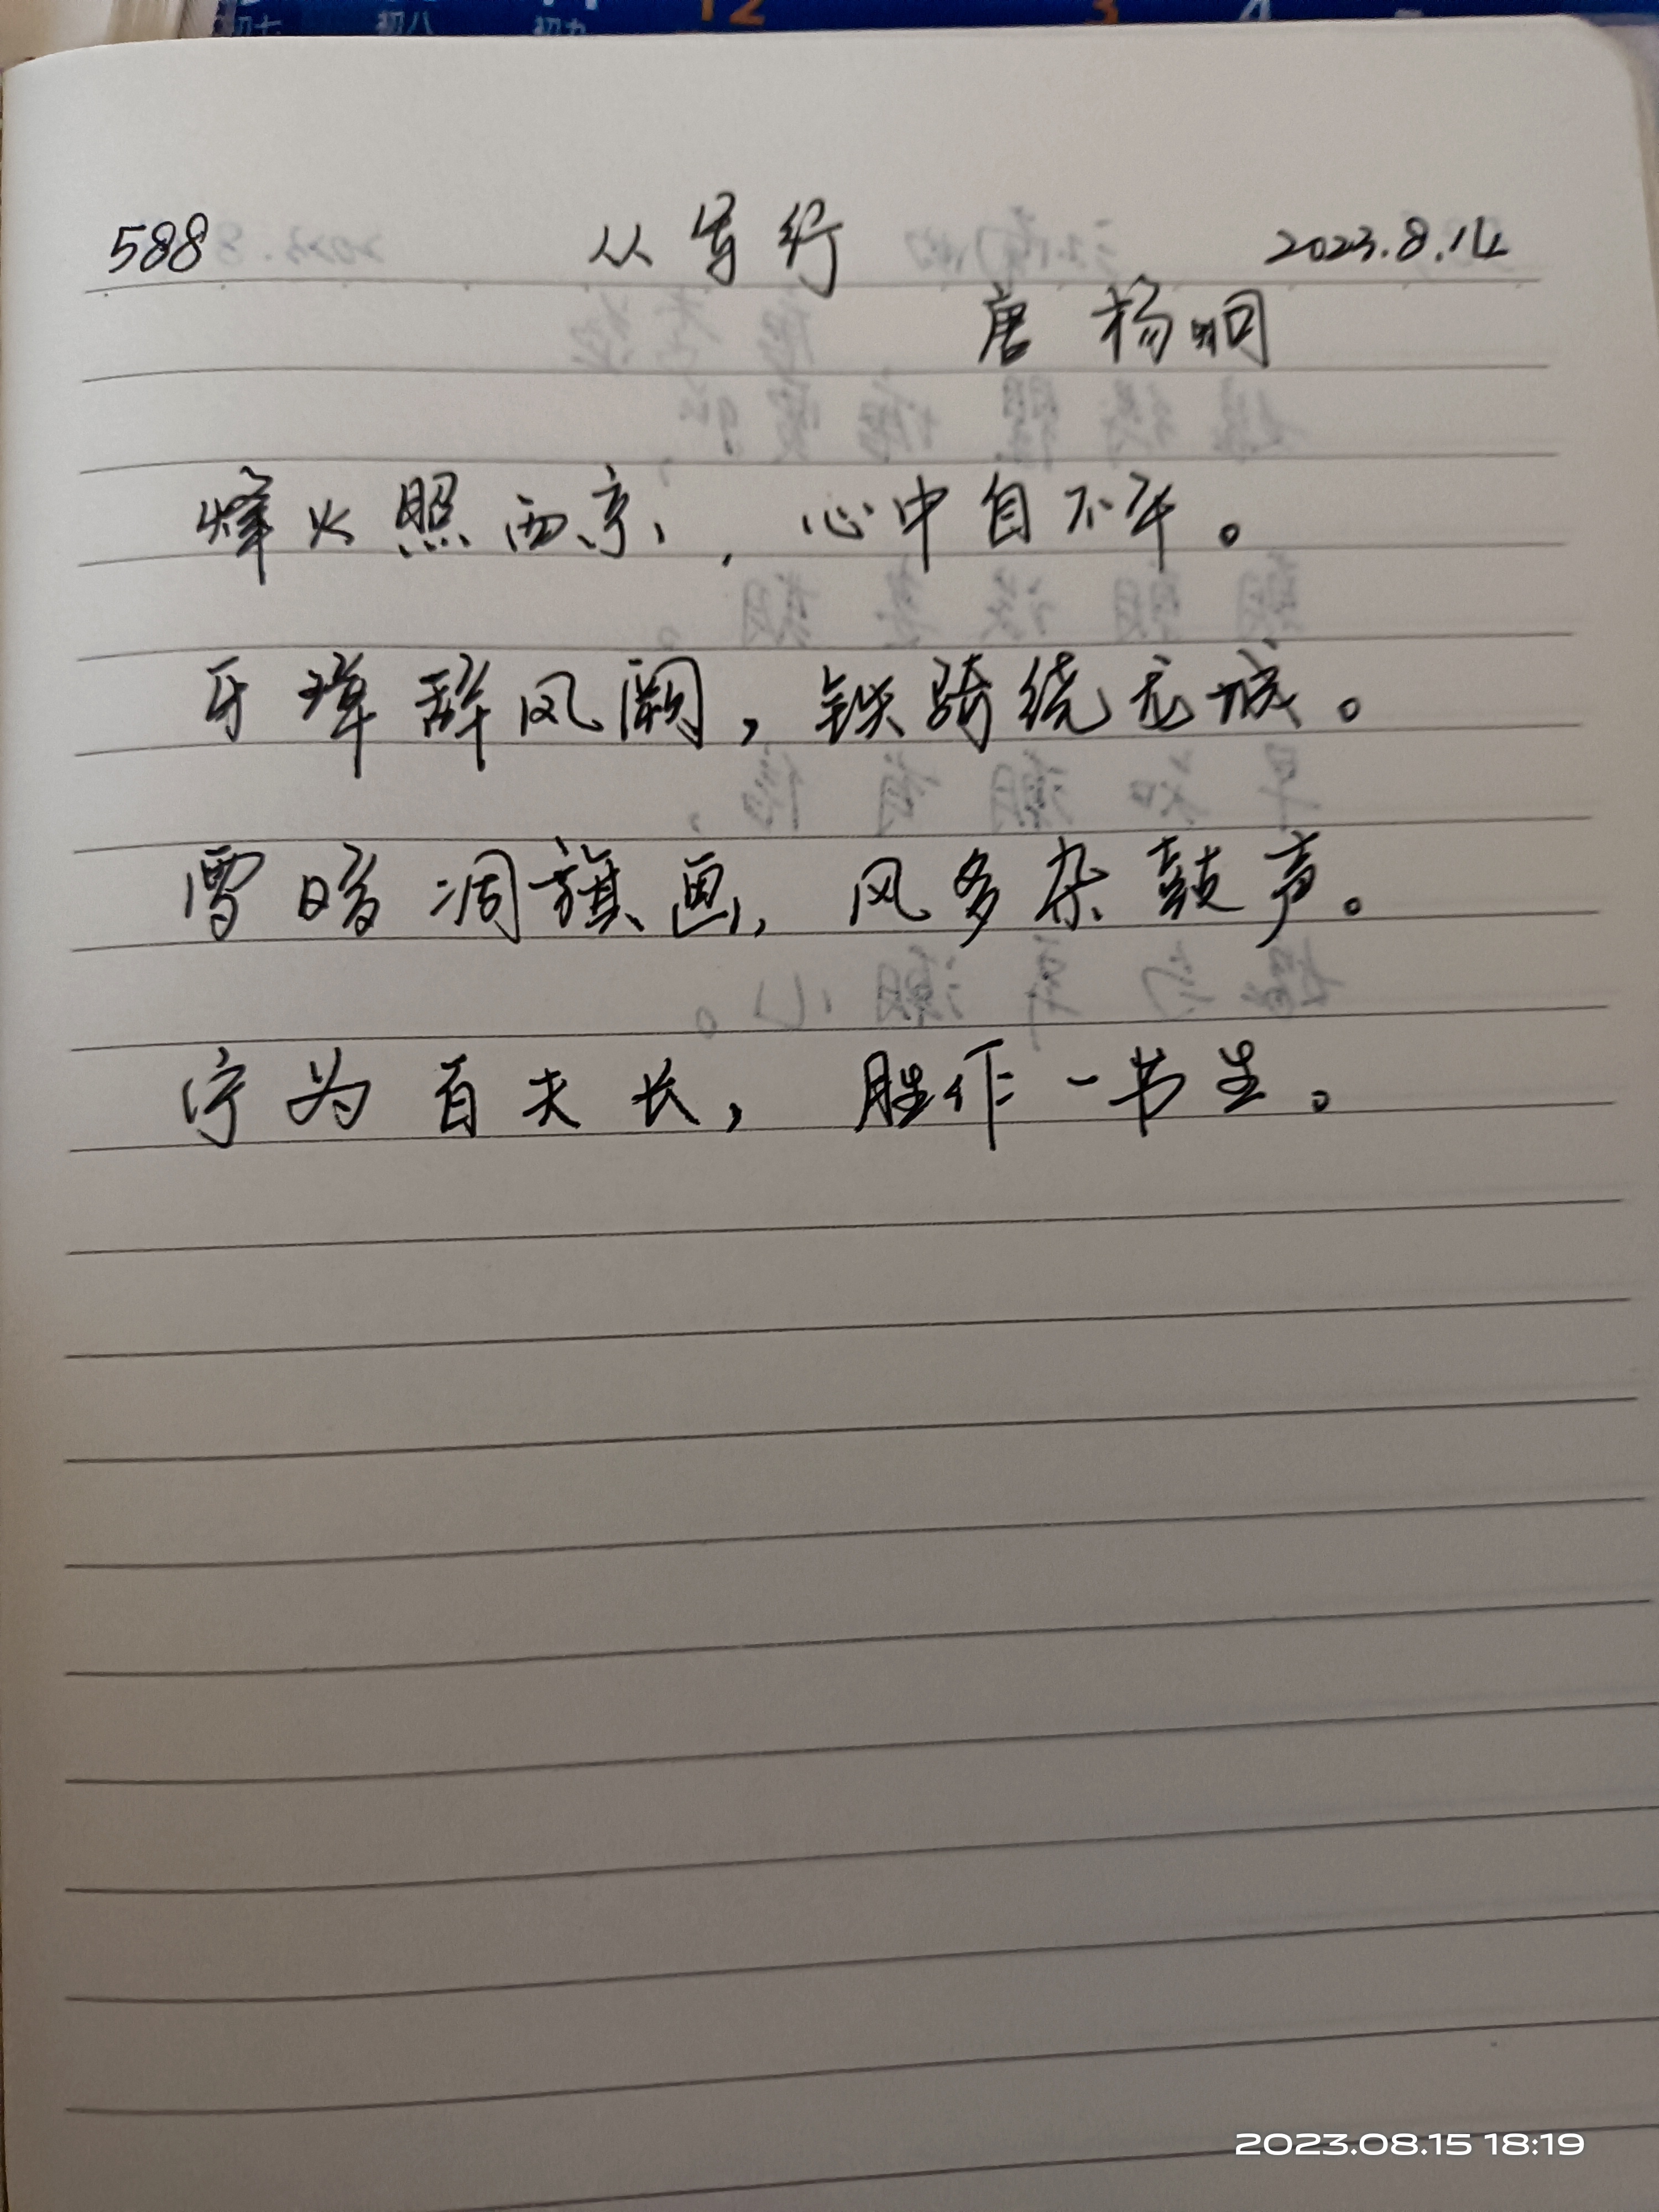 初七 初八 初九 12 3 4
588 从军行 2023.8.14
唐 杨炯
烽火照西京，心中自不平。
牙璋辞凤阙，铁骑绕龙城。
雪暗凋旗画，风多杂鼓声。
宁为百夫长，胜作一书生。
2023.08.15 18:19